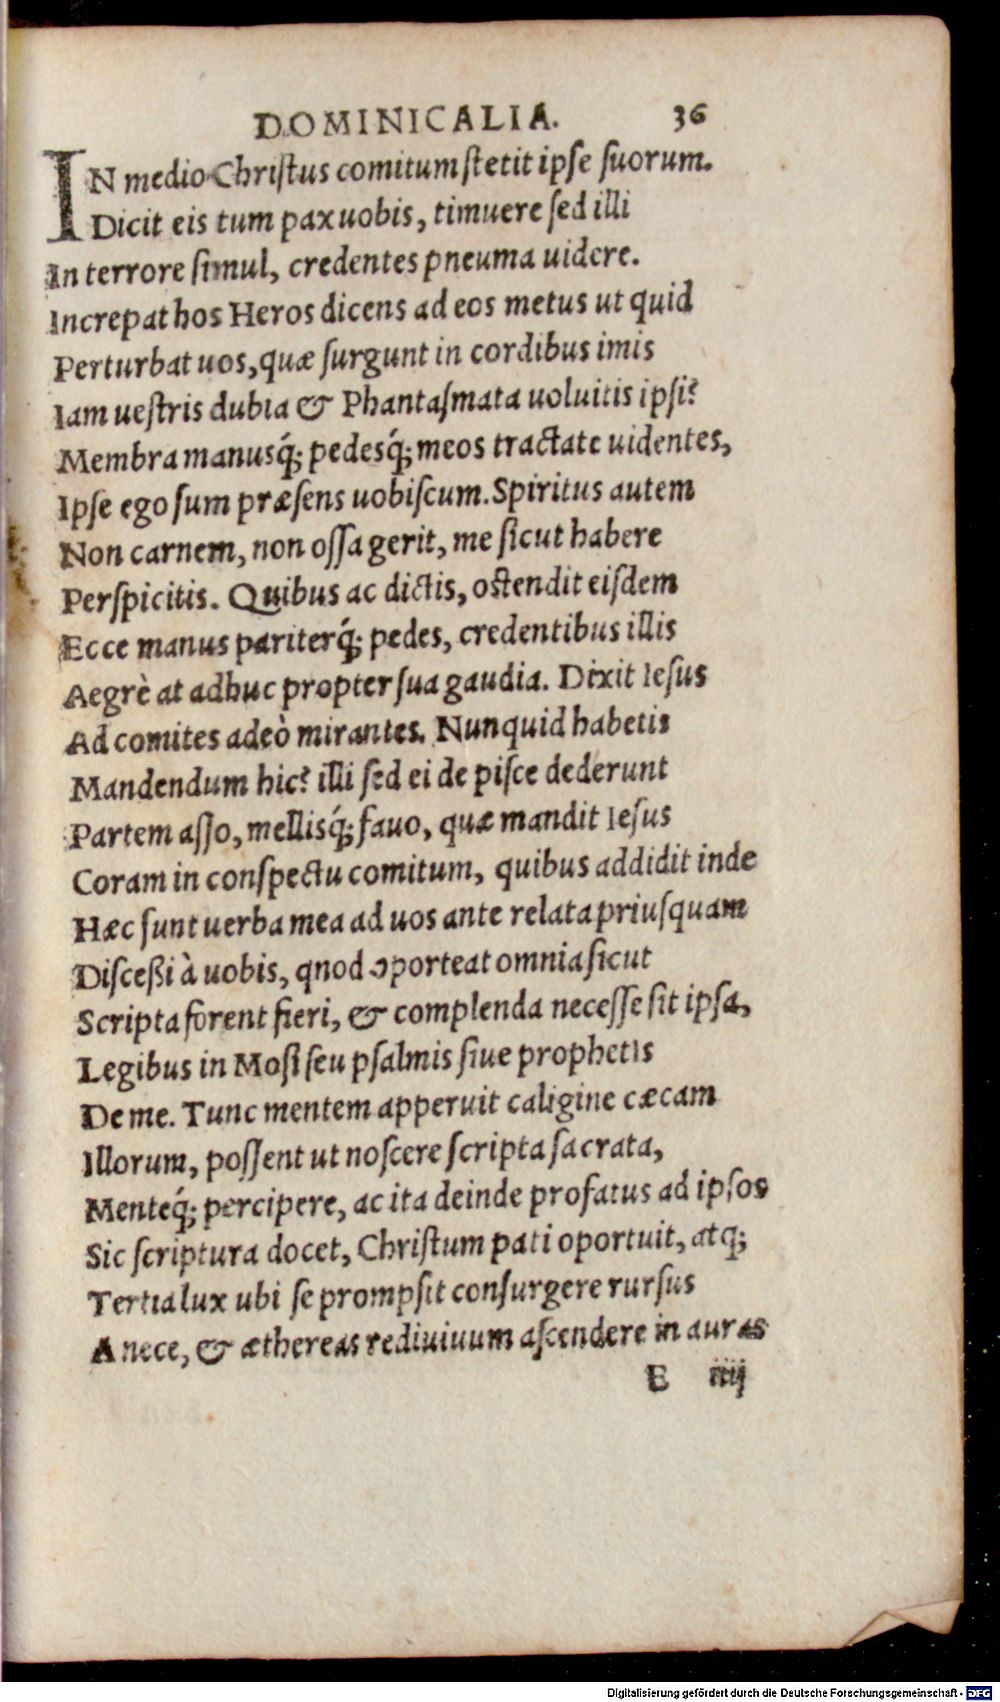 DOMINICALIA. 36
IN medio Chriſtus comitum ſtetit ipſe ſuorum.
Dicit eis tum pax uobis, timuere ſed illi
In terrore ſimul, credentes pneuma uidere.
Increpat hos Heros dicens ad eos metus ut quid
Perturbat uos, quæ ſurgunt in cordibus imis
Iam ueſtris dubia & Phantaſmata uoluitis ipſi?
Membra manusq́; pedesq́; meos tractate uidentes,
Ipſe ego ſum præſens uobiſcum. Spiritus autem
Non carnem, non oſſa gerit, me ſicut habere
Perſpicitis. Quibus ac dictis, oſtendit eiſdem
Ecce manus pariterq́; pedes, credentibus illis
Aegrè at adhuc propter ſua gaudia. Dixit Ieſus
Ad comites adeò mirantes. Nunquid habetis
Mandendum hic? illi ſed ei de piſce dederunt
Partem aſſo, mellisq́; fauo, quæ mandit Ieſus
Coram in conſpectu comitum, quibus addidit inde
Hæc ſunt uerba mea ad uos ante relata priuſquam
Diſceßi à uobis, qnod ɔporteat omnia ſicut
Scripta forent fieri, & complenda neceſſe ſit ipſa,
Legibus in Moſi ſeu pſalmis ſiue prophetis
De me. Tunc mentem apperuit caligine cæcam
Illorum, poſſent ut noſcere ſcripta ſacrata,
Menteq́; percipere, ac ita deinde profatus ad ipſos
Sic ſcriptura docet, Chriſtum pati oportuit, atq;
Tertia lux ubi ſe prompſit conſurgere rurſus
A nece, & æthereas rediuiuum aſcendere in auras
E iiij
Digitalisierung gefördert durch die Deutsche Forschungsgemeinschaft - DFG